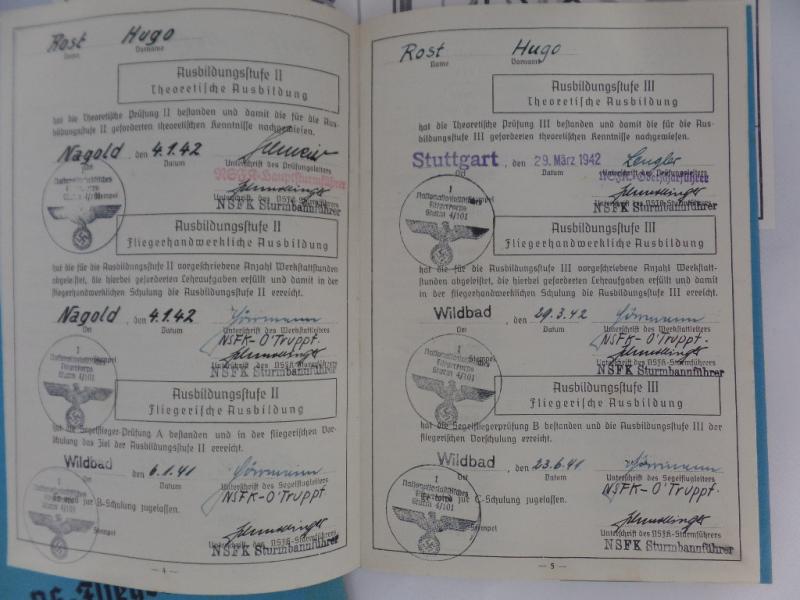 Rost Hugo
Name Vorname
Ausbildungsstufe II
Theoretische Ausbildung
hat die Theoretische Prüfung II bestanden und damit die für die Aus-
bildungsstufe II geforderten theoretischen Kenntnisse nachgewiesen.
Nagold, den 4.1.42
Ort Datum Unterschrift des Prüfungsleiters
NSFK-Hauptsturmführer
Stempel
1
Nationalsozialistisches
Fliegerkorps
Sturm 4/101
Unterschrift des NSFK-Sturmführers
NSFK Sturmbannführer
Ausbildungsstufe II
Fliegerhandwerkliche Ausbildung
hat die für die Ausbildungsstufe II vorgeschriebene Anzahl Werkstattstunden
abgeleistet, die hierbei geforderten Lehraufgaben erfüllt und damit in der
fliegerhandwerklichen Schulung die Ausbildungsstufe II erreicht.
Nagold, den 4.1.42
Ort Datum Unterschrift des Werkstattleiters
NSFK-O'Truppf.
1 Stempel
Nationalsozialistisches
Fliegerkorps
Sturm 4/101
Unterschrift des NSFK-Sturmführers
NSFK Sturmbannführer
Ausbildungsstufe II
Fliegerische Ausbildung
hat die Segelflieger-Prüfung A bestanden und in der fliegerischen Vor-
schulung das Ziel der Ausbildungsstufe II erreicht.
Wildbad, den 6.1.41
Ort Datum Unterschrift des Segelfluglehrers
NSFK-O'Truppf.
zur B-Schulung zugelassen.
1
Nationalsozialistisches
Sturm 4/101
Stempel
Unterschrift des NSFK-Sturmführers
NSFK Sturmbannführer
— 4 —
Rost Hugo
Name Vorname
Ausbildungsstufe III
Theoretische Ausbildung
hat die Theoretische Prüfung III bestanden und damit die für die Aus-
bildungsstufe III geforderten theoretischen Kenntnisse nachgewiesen.
Stuttgart, den 29. März 1942 Lengler
Ort Datum Unterschrift des Prüfungsleiters
NSFK-Oberscharführer
1
Nationalsozialistisches
Fliegerkorps
Sturm 4/101
Unterschrift des NSFK-Sturmführers
NSFK Sturmbannführer
Ausbildungsstufe III
Fliegerhandwerkliche Ausbildung
hat die für die Ausbildungsstufe III vorgeschriebene Anzahl Werkstatt-
stunden abgeleistet, die hierbei geforderten Lehraufgaben erfüllt und damit
in der fliegerhandwerklichen Schulung die Ausbildungsstufe III erreicht.
Wildbad, den 29.3.42
Ort Datum Unterschrift des Werkstattleiters
NSFK-O'Truppf.
1 Stempel
Nationalsozialistisches
Fliegerkorps
Sturm 4/101
Unterschrift des NSFK-Sturmführers
NSFK Sturmbannführer
Ausbildungsstufe III
Fliegerische Ausbildung
hat die Segelfliegerprüfung B bestanden und die Ausbildungsstufe III der
fliegerischen Vorschulung erreicht.
Wildbad, den 23.6.41
Ort Datum Unterschrift des Segelfluglehrers
NSFK-O'Truppf.
zur C-Schulung zugelassen.
1
Nationalsozialistisches
Sturm 4/101
Stempel
Unterschrift des NSFK-Sturmführers
NSFK Sturmbannführer
— 5 —